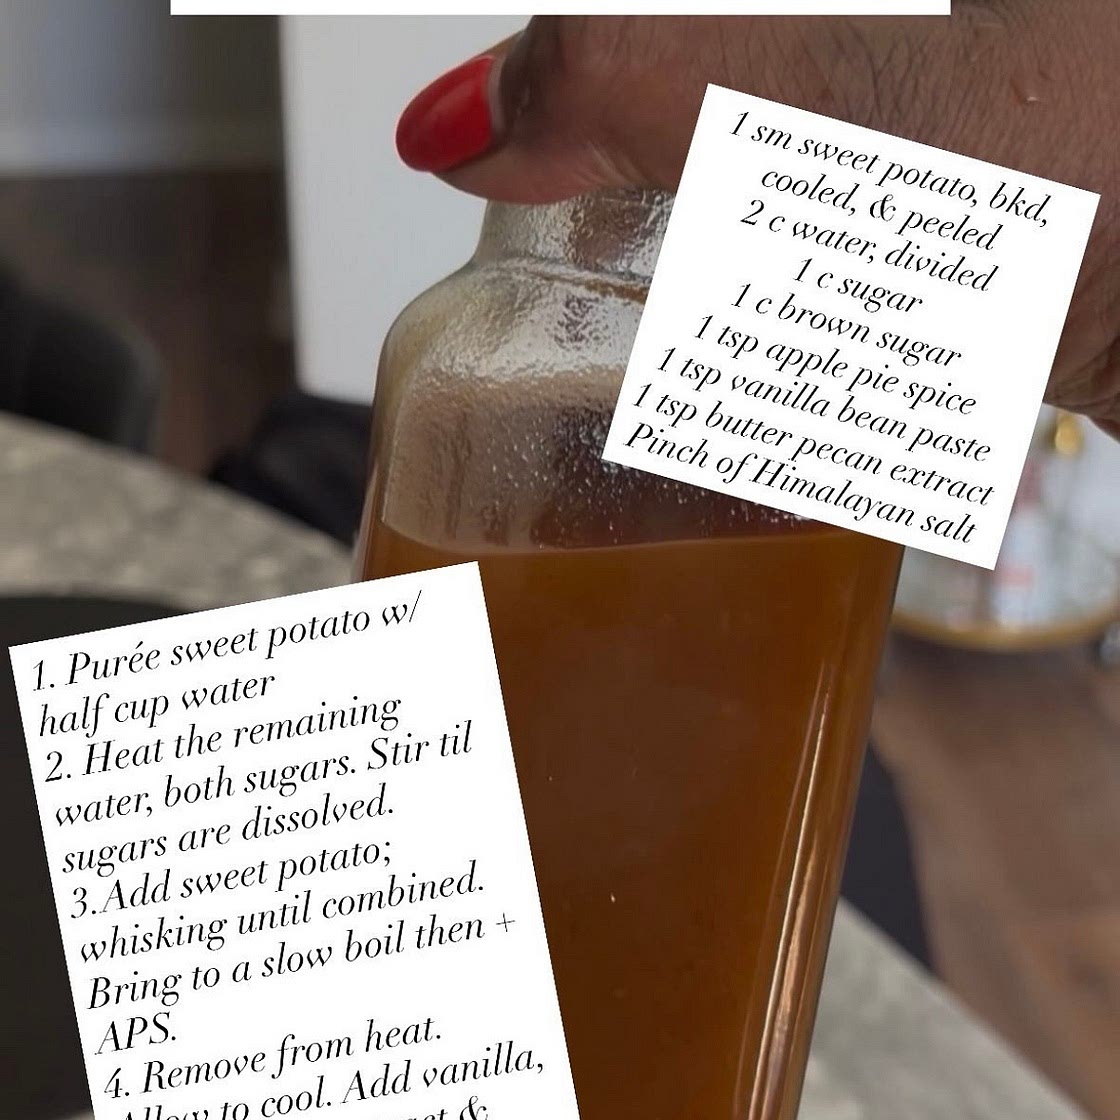 1 sm sweet potato, bkd,
cooled, & peeled
2 c water, divided
1 c sugar
1 c brown sugar
1 tsp apple pie spice
1 tsp vanilla bean paste
1 tsp butter pecan extract
Pinch of Himalayan salt
1. Purée sweet potato w/
half cup water
2. Heat the remaining
water, both sugars. Stir til
sugars are dissolved.
3.Add sweet potato;
whisking until combined.
Bring to a slow boil then +
APS.
4. Remove from heat.
Allow to cool. Add vanilla,
&